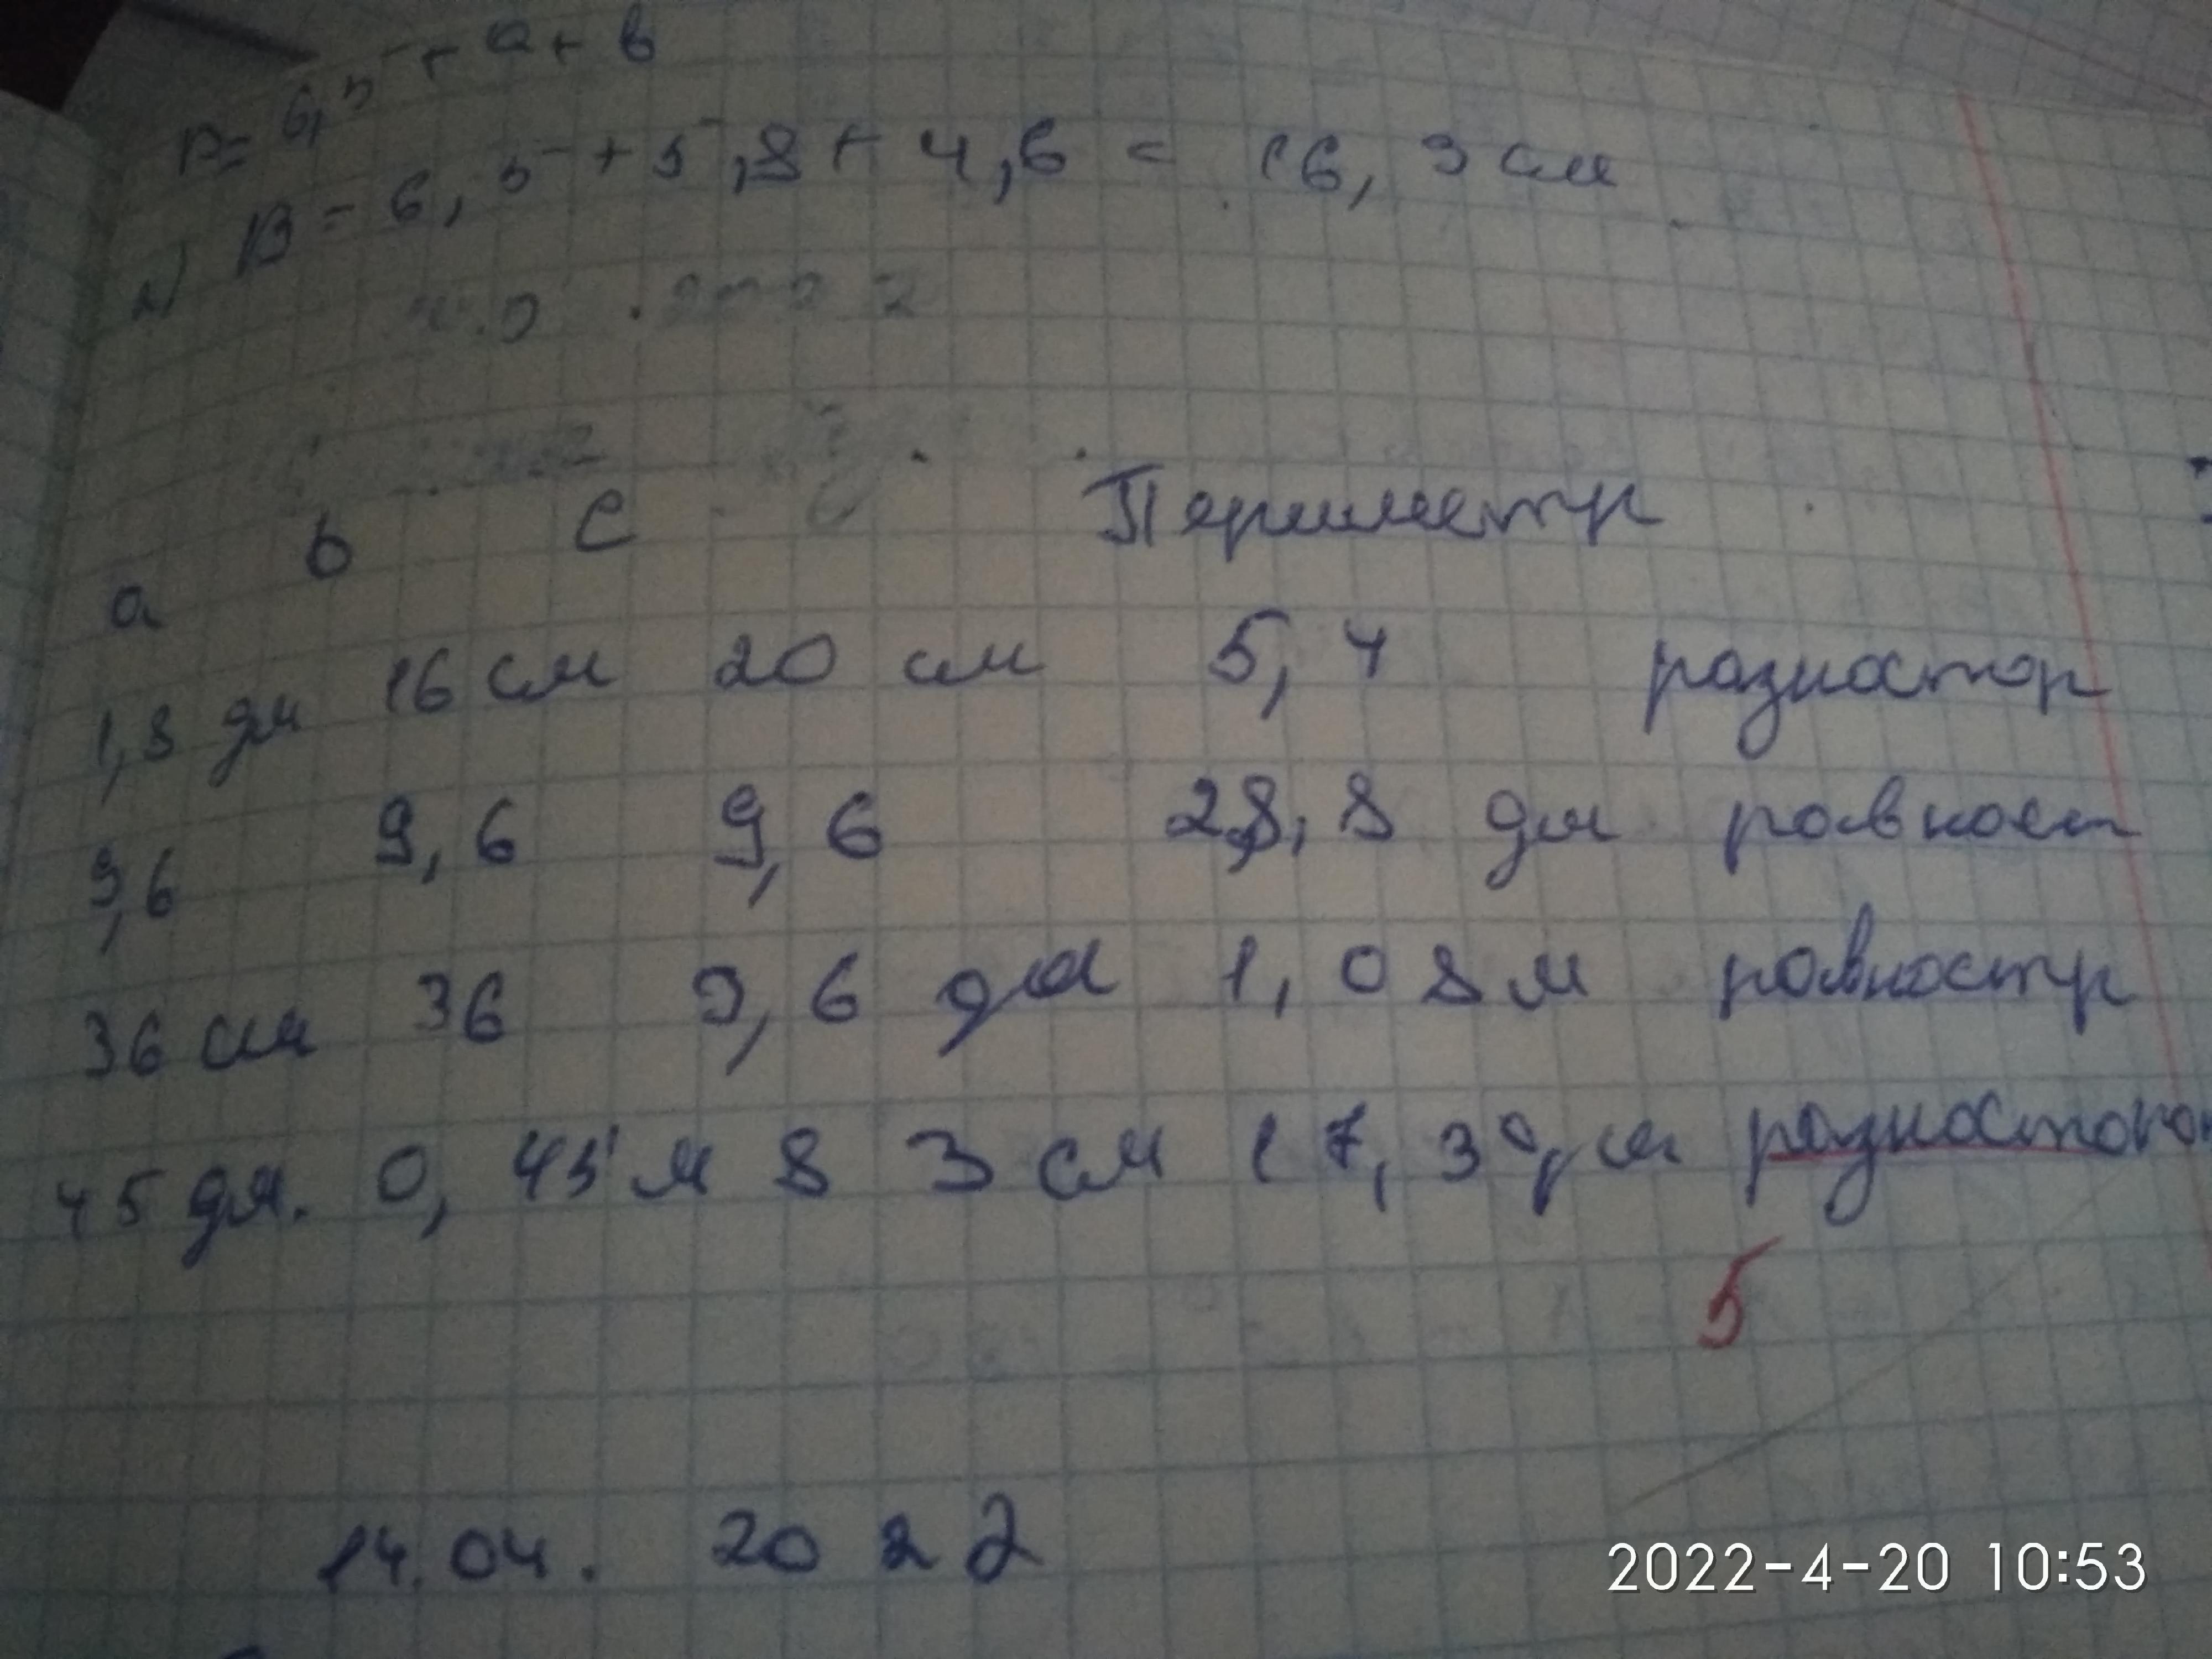 P= 6,5 + a + b
2) B = 6,5 + 5,8 + 4,6 = 16,3 см
a b c Периметр
1,8 дм 16 см 20 см 5,4 разностор
9,6 9,6 9,6 28,8 дм равност
36 см 36 3,6 дм 1,08 м равностр
45 дм. 0,45 м 83 см 17,3 дм разносторо
5
14.04. 2022
2022-4-20 10:53